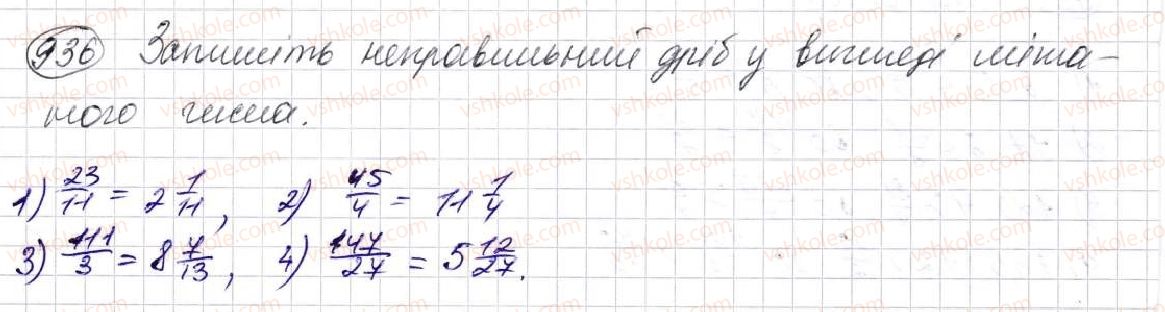 936 Запишіть неправильний дріб у вигляді міша-
ного числа.
1) 23/11 = 2 1/11, 2) 45/4 = 11 1/4
3) 111/3 = 8 7/13, 4) 147/27 = 5 12/27.
vshkole.com